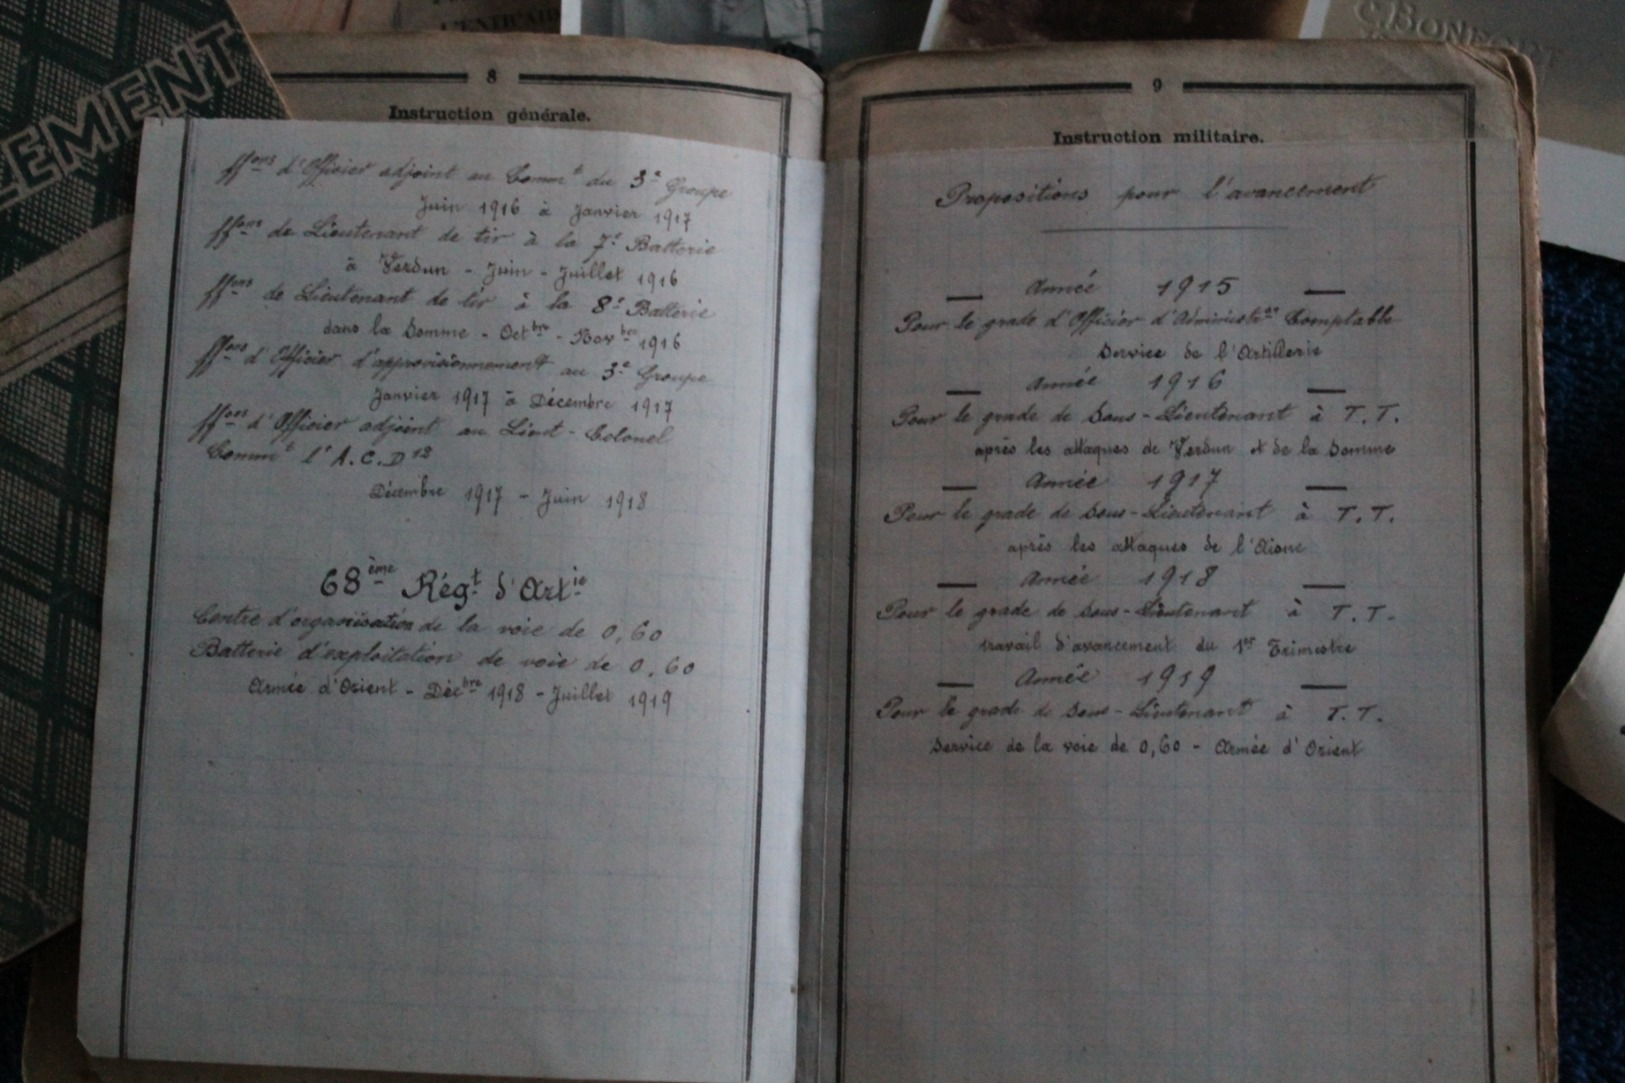 L'ENTR'AID
C. BONFORT
EMENT
8
Instruction générale.
ffons d'Officier adjoint au Commt du 3e Groupe
Juin 1916 à Janvier 1917
ffons de Lieutenant de tir à la 7e Batterie
à Verdun - Juin - Juillet 1916
ffons de Lieutenant de tir à la 8e Batterie
dans la Somme - Octbre - Novbre 1916
ffons d'Officier d'approvisionnement au 3e Groupe
Janvier 1917 à Décembre 1917
ffons d'Officier adjoint au Lieut-Colonel
Commt l'A.C.D 12
Décembre 1917 - Juin 1918
68ème Régt d'Artie
Centre d'organisation de la voie de 0,60
Batterie d'exploitation de voie de 0,60
Armée d'Orient - Décbre 1918 - Juillet 1919
9
Instruction militaire.
Propositions pour l'avancement
— Année 1915 —
Pour le grade d'Officier d'Administron Comptable
Service de l'Artillerie
— Année 1916 —
Pour le grade de Sous-Lieutenant à T.T.
après les attaques de Verdun et de la Somme
— Année 1917 —
Pour le grade de Sous-Lieutenant à T.T.
après les attaques de l'Aisne
— Année 1918 —
Pour le grade de Sous-Lieutenant à T.T.
travail d'avancement du 1er Trimestre
— Année 1919 —
Pour le grade de Sous-Lieutenant à T.T.
Service de la voie de 0,60 - Armée d'Orient